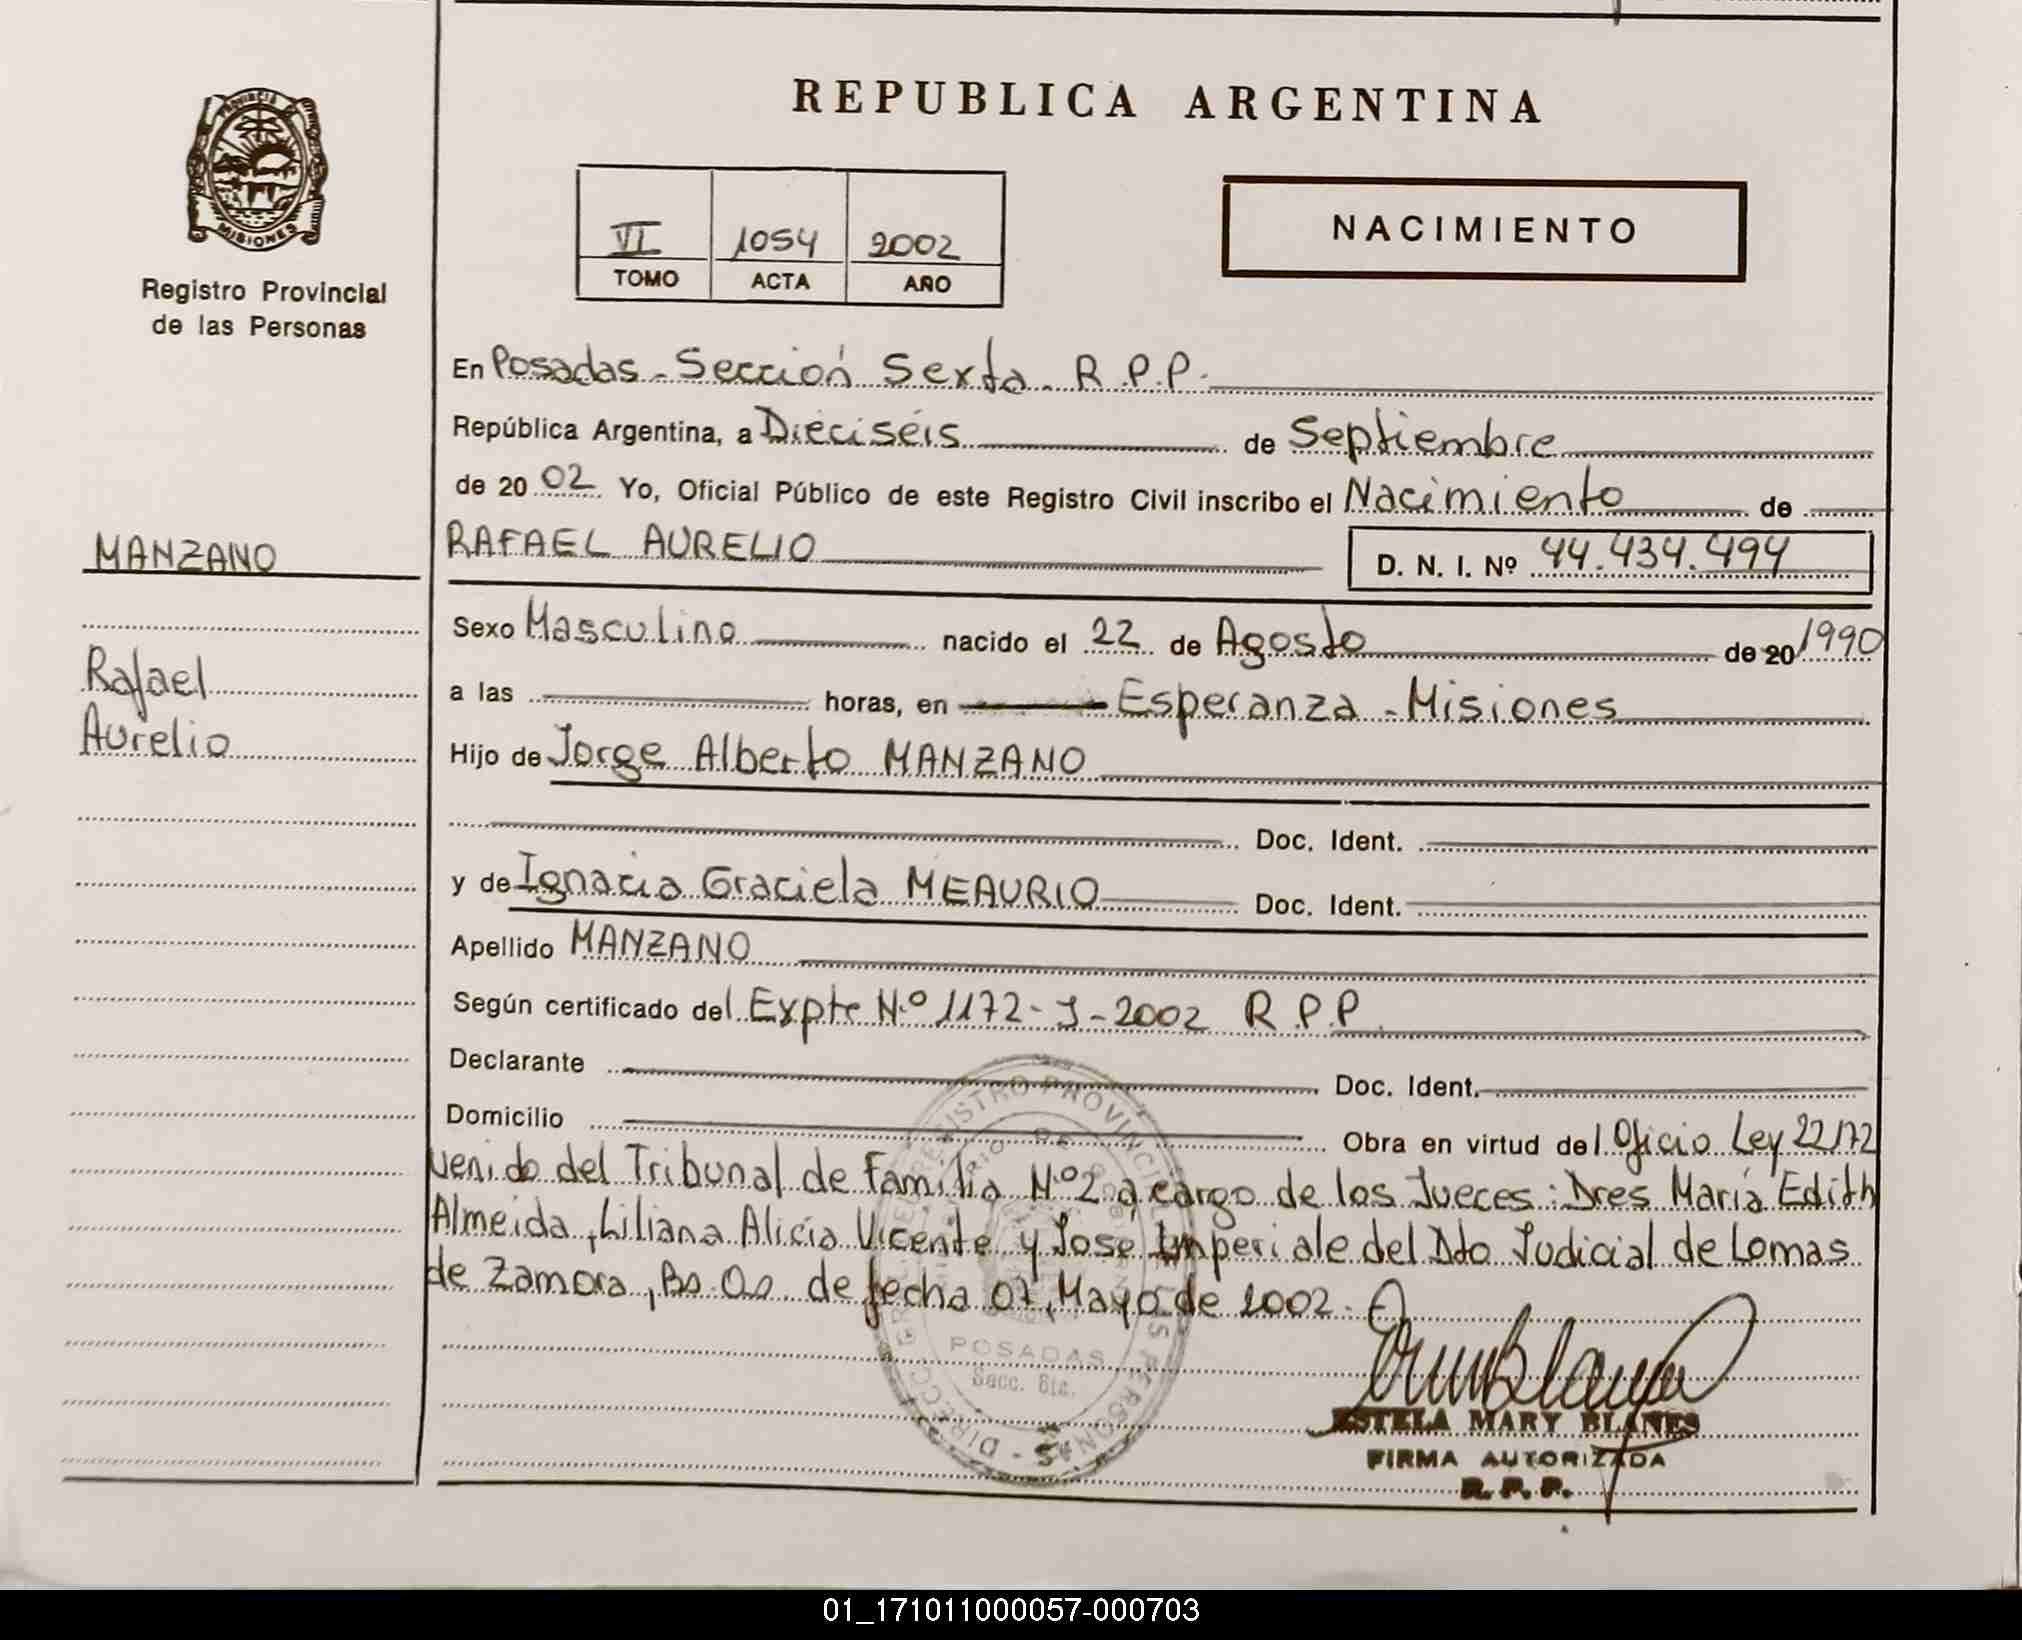 REPUBLICA ARGENTINA
PROVINCIA
MISIONES
Registro Provincial
de las Personas
VI 1054 2002
TOMO ACTA AÑO
NACIMIENTO
En Posadas - Sección Sexta - R.P.P.
República Argentina, a Dieciséis de Septiembre
de 20 02 Yo, Oficial Público de este Registro Civil inscribo el Nacimiento de
MANZANO
RAFAEL AURELIO D. N. I. Nº 44.434.494
Sexo Masculino nacido el 22 de Agosto de 20 1990
Rafael
a las horas, en Esperanza - Misiones
Aurelio
Hijo de Jorge Alberto MANZANO
Doc. Ident.
y de Ignacia Graciela MEAURIO Doc. Ident.
Apellido MANZANO
Según certificado del Expte N.º 1172-J-2002 R.P.P.
Declarante Doc. Ident.
Domicilio Obra en virtud del Oficio Ley 22172
venido del Tribunal de Familia N.º 2 a cargo de los Jueces: Dres María Edith
Almeida, Liliana Alicia Vicente y José Imperiale del Dto Judicial de Lomas
de Zamora, Bs. As. de fecha 07, Mayo de 2002.
POSADAS
Secc. 6ta.
ESTELA MARY BLANES
FIRMA AUTORIZADA
R. P. P.
01_171011000057-000703